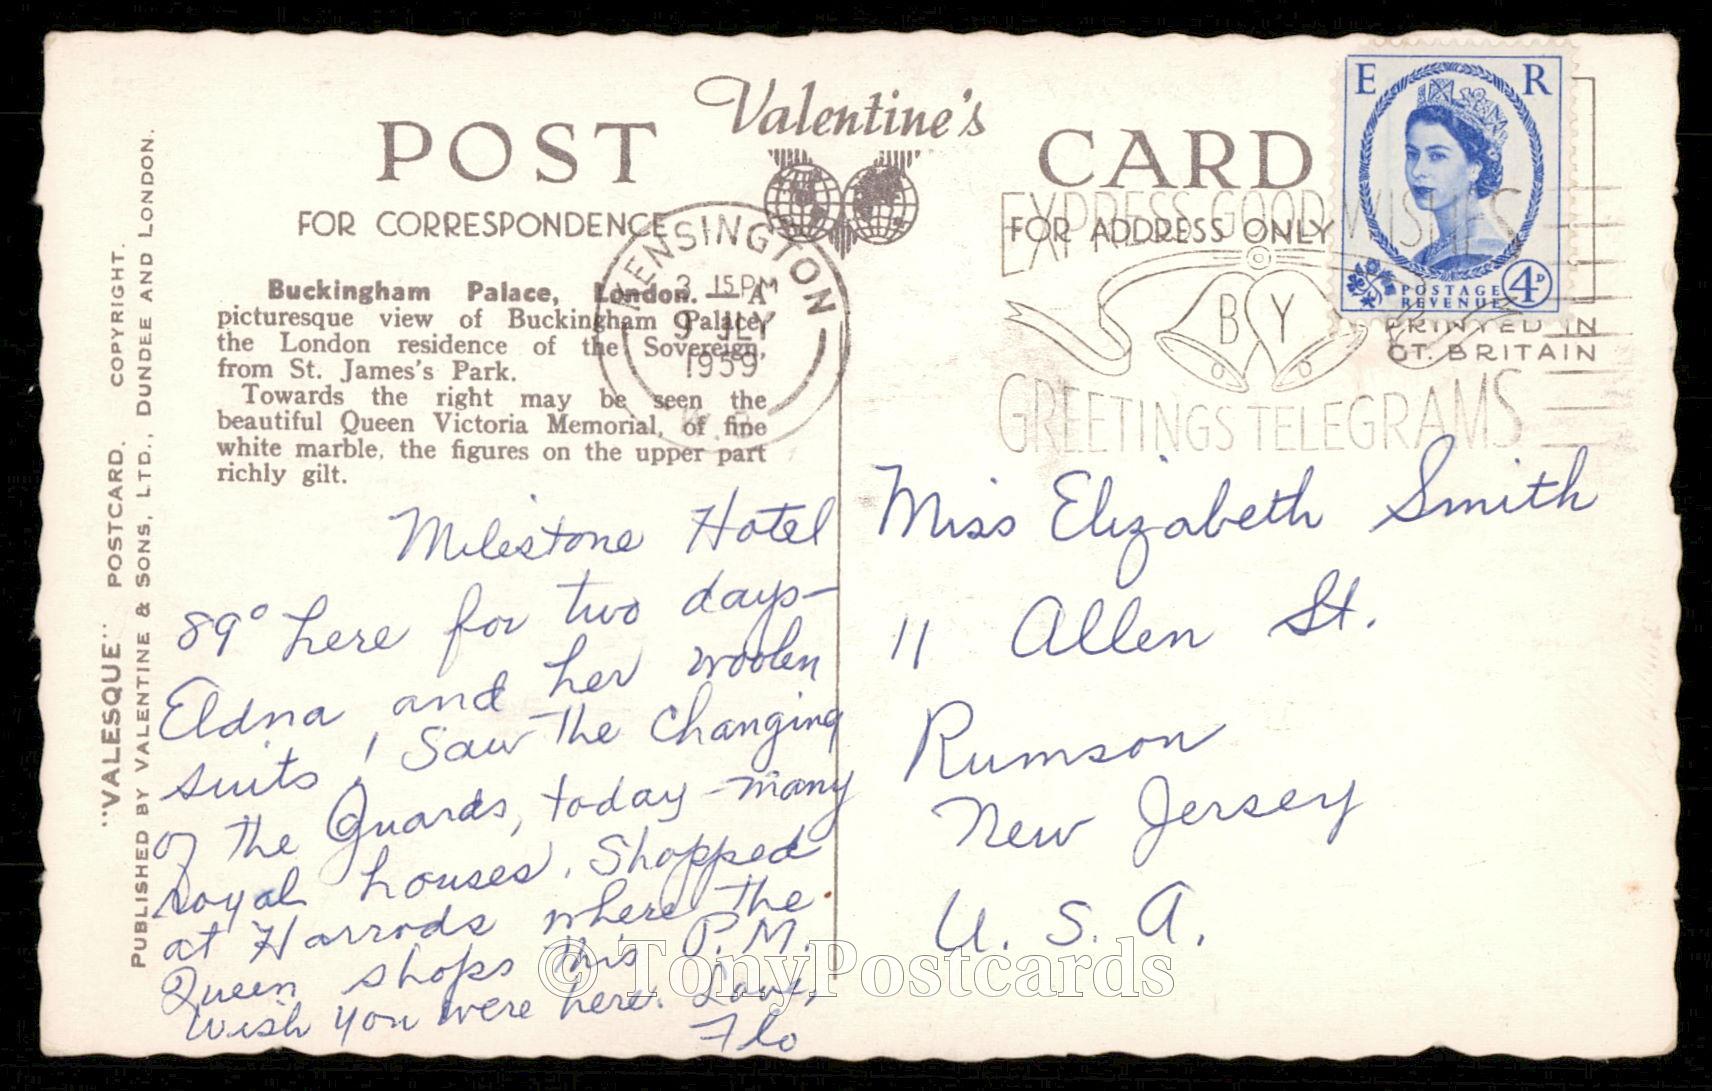 Valentine's
POST CARD
FOR CORRESPONDENCE
FOR ADDRESS ONLY
Buckingham Palace, London. — A
picturesque view of Buckingham Palace,
the London residence of the Sovereign,
from St. James's Park.
Towards the right may be seen the
beautiful Queen Victoria Memorial, of fine
white marble, the figures on the upper part
richly gilt.
"VALESQUE" POSTCARD. COPYRIGHT.
PUBLISHED BY VALENTINE & SONS, LTD., DUNDEE AND LONDON.
KENSINGTON
3 15 PM
9 JLY
1959
W.8
EXPRESS GOOD WISHES
BY
GREETINGS TELEGRAMS
E R
POSTAGE
REVENUE
4D
PRINTED IN
GT. BRITAIN
Milestone Hotel
89° here for two days—
Eldna, and her woolen
suits! Saw the Changing
of the Guards, today - many
royal houses. Shopped
at Harrods where the
Queen shops this P.M.
Wish you were here. Love,
Flo
Miss Elizabeth Smith
11 Allen St.
Rumson
New Jersey
U. S. A.
© TonyPostcards